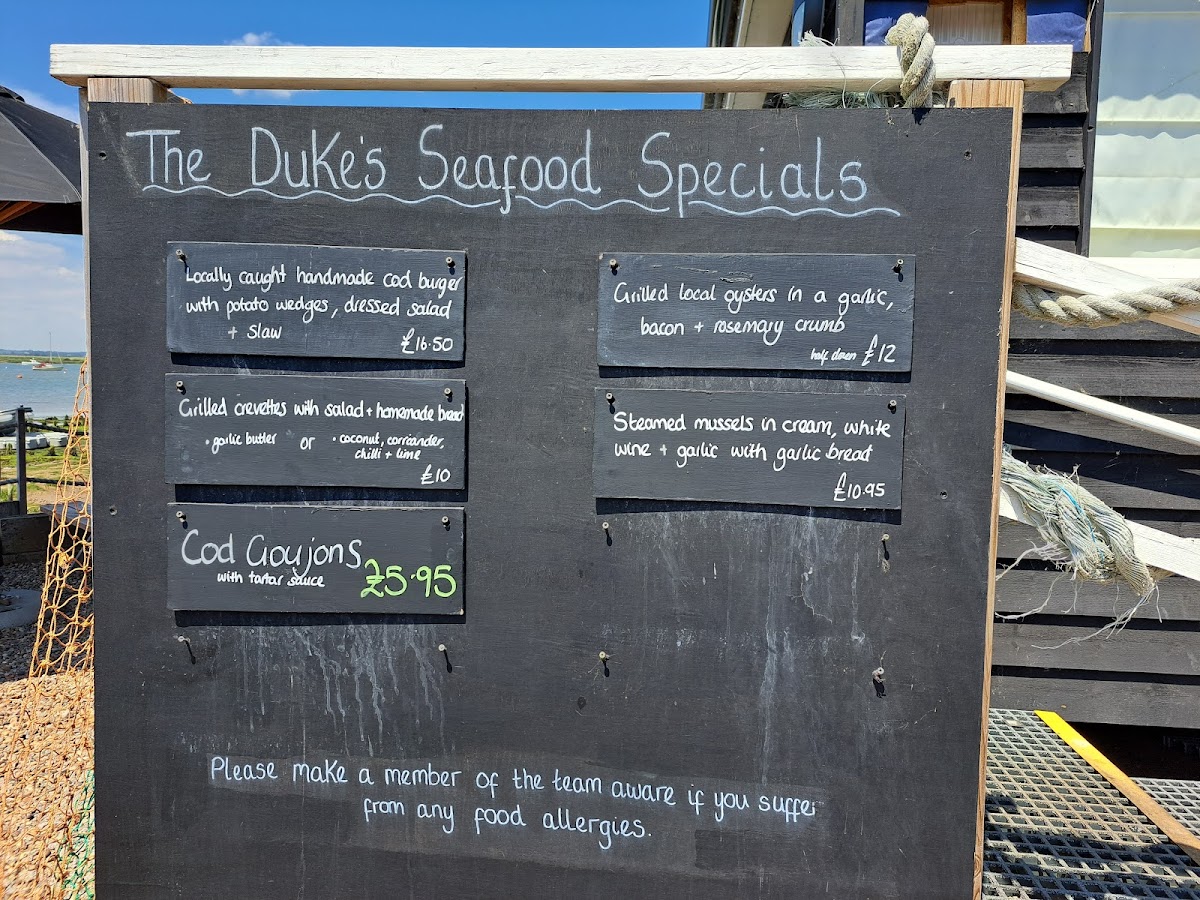 The Duke's Seafood Specials
Locally caught handmade cod burger
with potato wedges, dressed salad
+ slaw
£16.50
Grilled crevettes with salad + homemade bread
• garlic butter or • coconut, corriander,
chilli + lime
£10
Cod Goujons
with tartar sauce
£5.95
Grilled local oysters in a garlic,
bacon + rosemary crumb
half dozen £12
Steamed mussels in cream, white
wine + garlic with garlic bread
£10.95
Please make a member of the team aware if you suffer
from any food allergies.